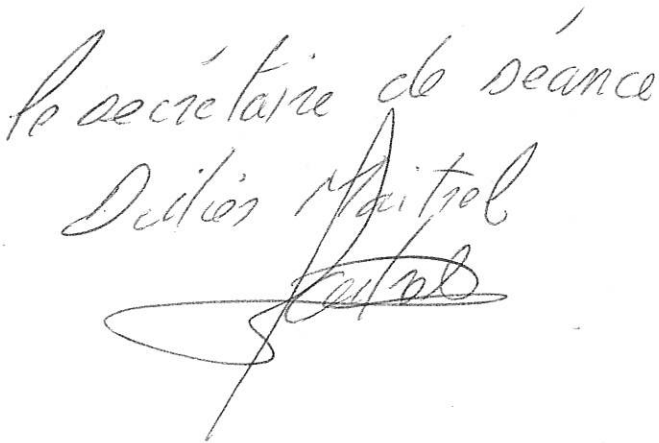 le secrétaire de séance
Maitrel